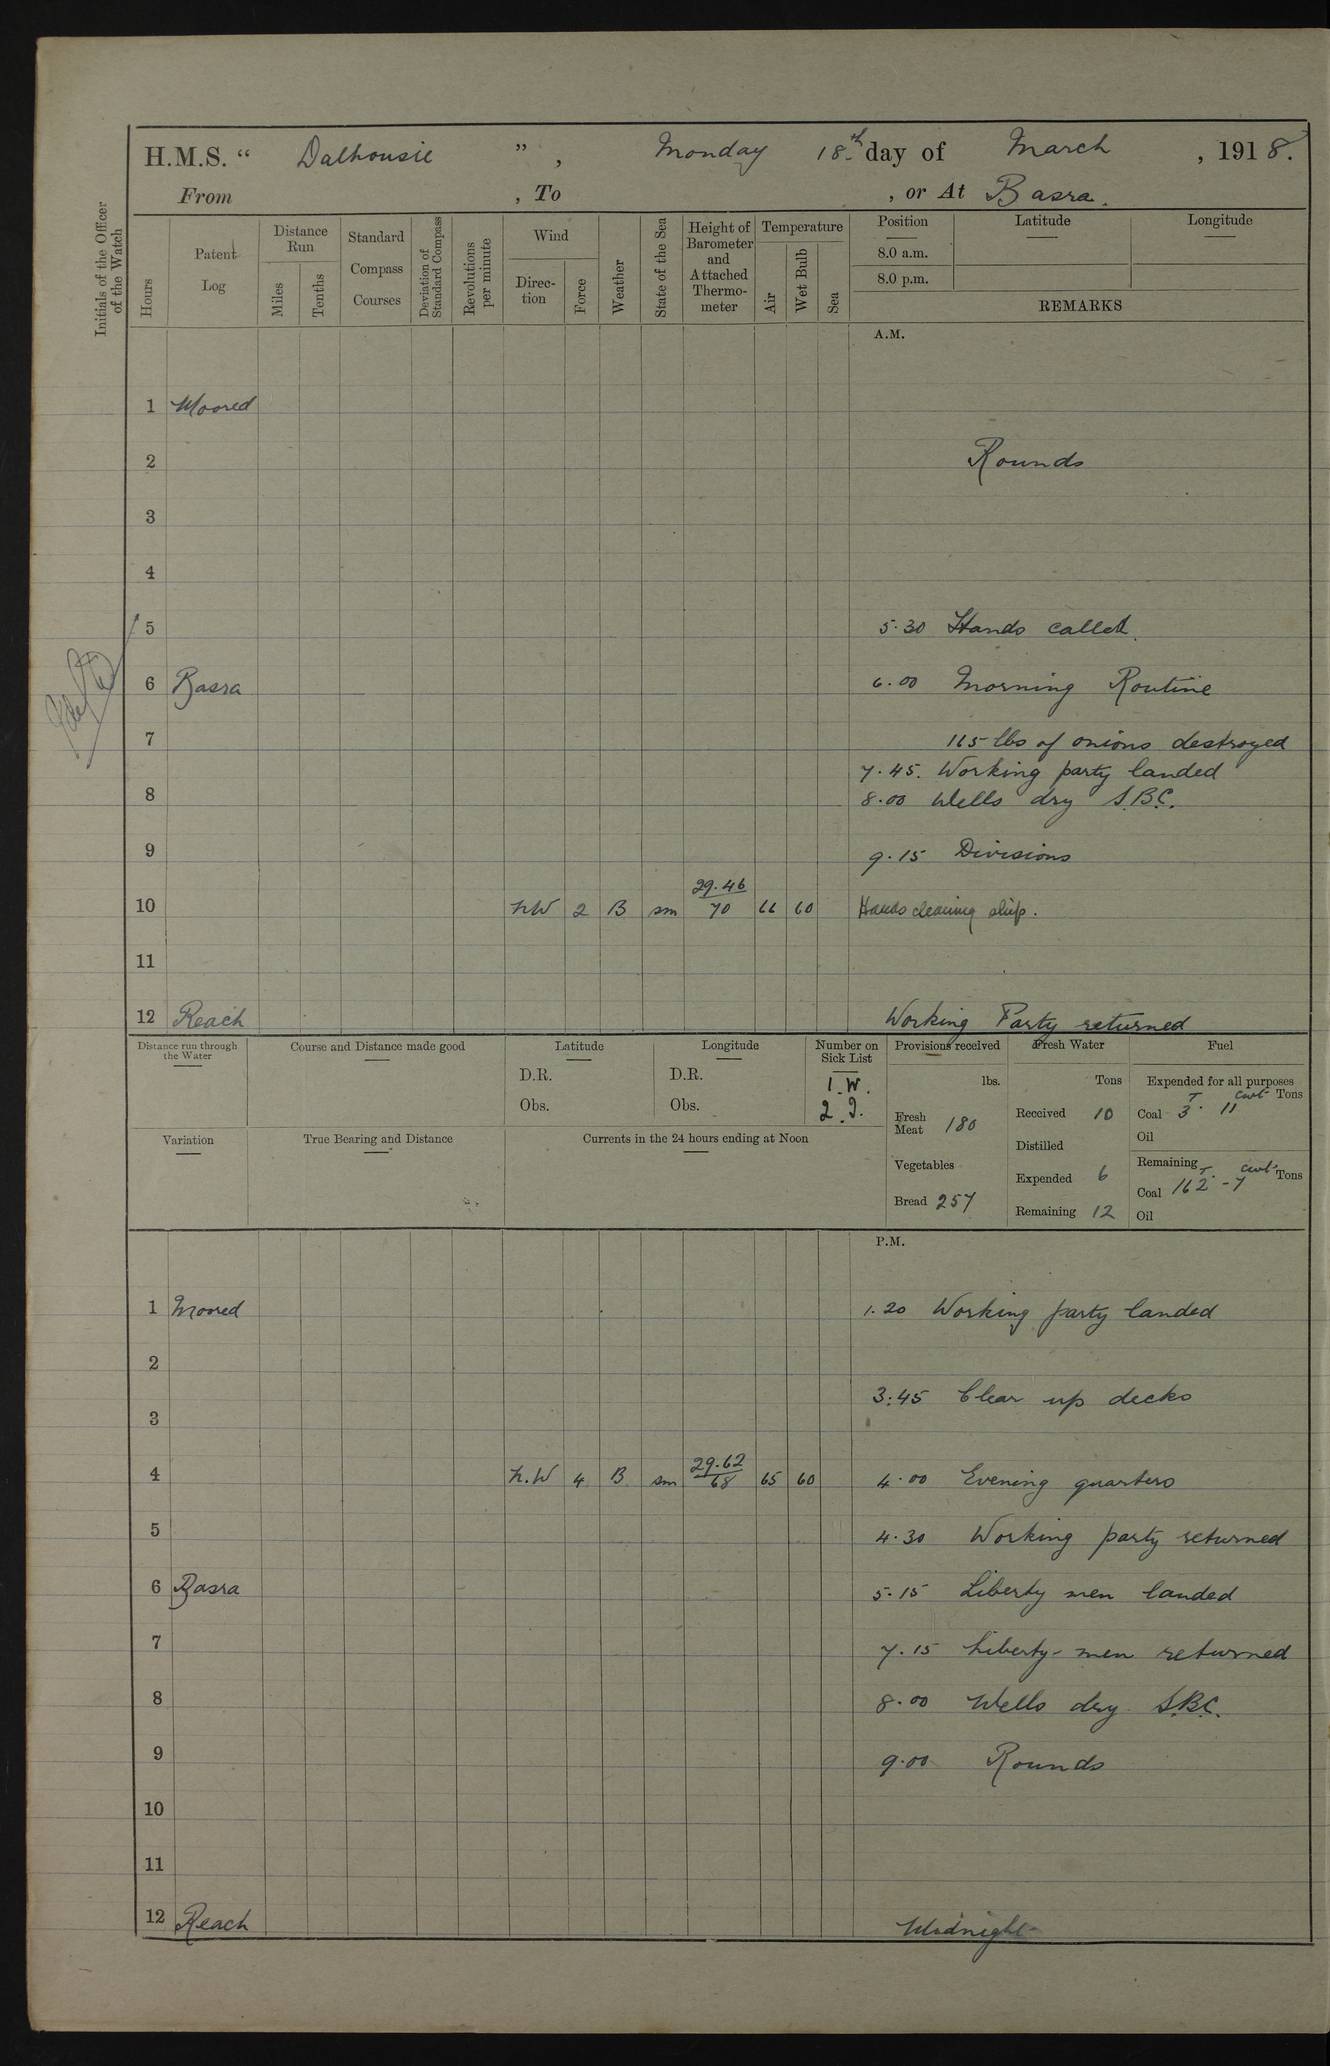 H.M.S. “ Dalhousie ” , Monday 18.th day of March , 1918.
From , To , or At Basra.
Initials of the Officer of the Watch
Hours
Patent Log
Distance Run
Miles
Tenths
Standard Compass Courses
Deviation of Standard Compass
Revolutions per minute
Wind
Direction
Force
Weather
State of the Sea
Height of Barometer and Attached Thermometer
Temperature
Air
Wet Bulb
Sea
Position Latitude Longitude
8.0 a.m.
8.0 p.m.
REMARKS
A.M.
1 Moored
2 Rounds
3
4
5 5.30 Hands called.
6 Basra 6.00 Morning Routine
7 115 lbs of onions destroyed
7.45. Working party landed
8 8.00 Wells dry S.B.C.
9 9.15 Divisions
10 NW 2 B sm 29.46 70 66 60 Hands cleaning ship.
11
12 Reach Working Party returned
Distance run through the Water
Course and Distance made good
Latitude
D.R.
Obs.
Longitude
D.R.
Obs.
Number on Sick List
1.W.
2.I.
Provisions received
lbs.
Fresh Meat 180
Vegetables
Bread 257
Fresh Water
Tons
Received 10
Distilled
Expended 6
Remaining 12
Fuel
Expended for all purposes
T cwt Tons
Coal 3 . 11
Oil
Remaining T. cwts Tons
Coal 162 - 7
Oil
Variation
True Bearing and Distance
Currents in the 24 hours ending at Noon
P.M.
1 Moored 1.20 Working party landed
2
3:45 Clear up decks
3
4 N.W 4 B sm 29.62 68 65 60 4.00 Evening quarters
5 4.30 Working party returned
6 Basra 5.15 Liberty men landed
7 7.15 Liberty-men returned
8 8.00 Wells dry S.B.C.
9 9.00 Rounds
10
11
12 Reach Midnight